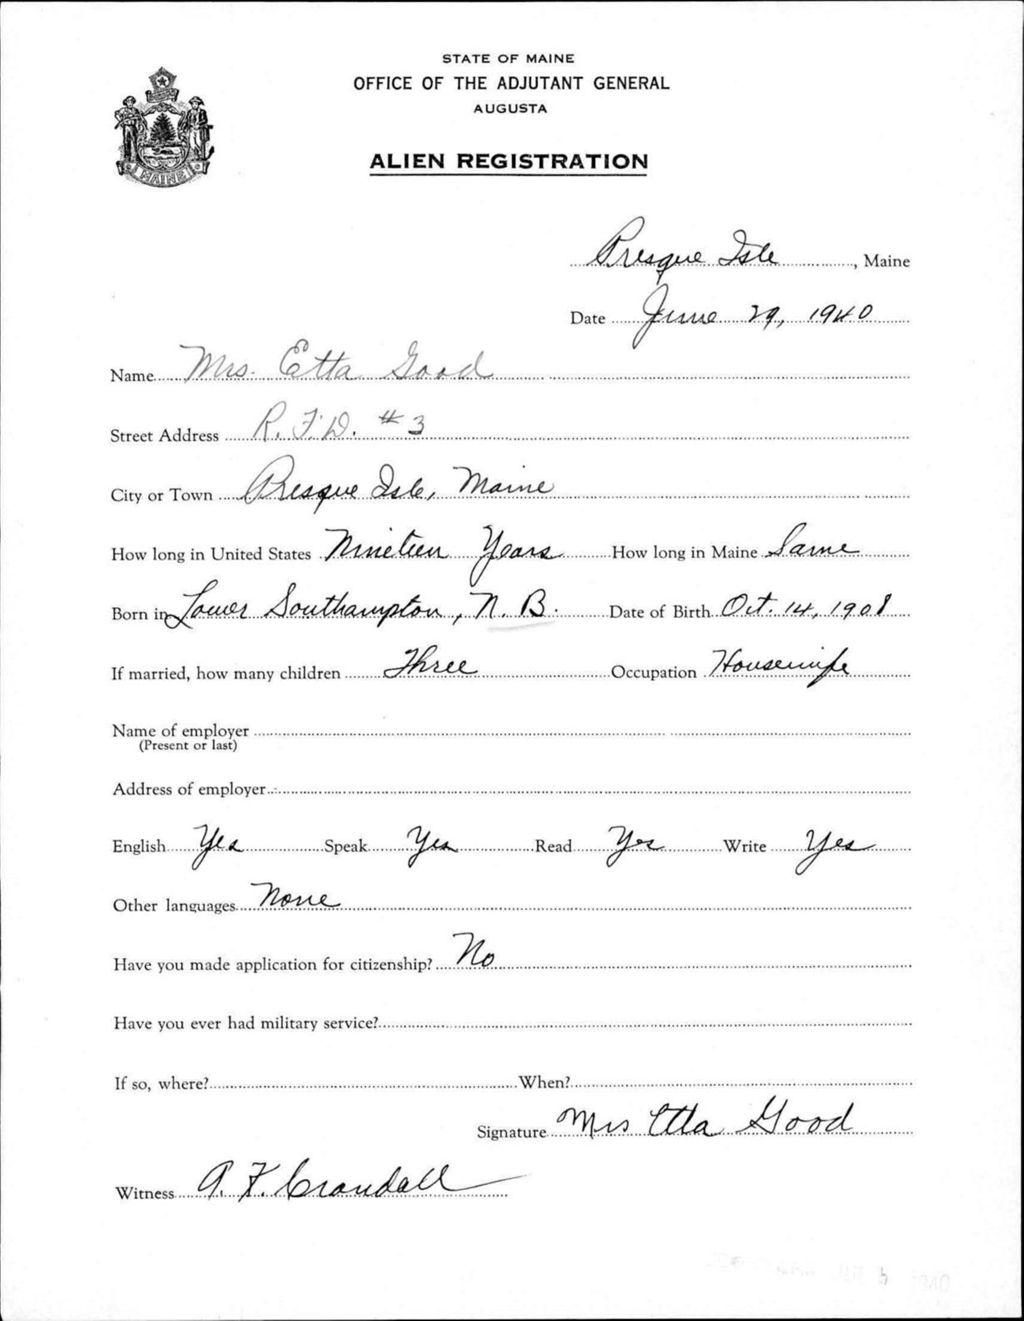 STATE OF MAINE
OFFICE OF THE ADJUTANT GENERAL
AUGUSTA
ALIEN REGISTRATION
MAINE
Presque Isle, Maine
Date June 29, 1940
Name Mrs. Etta Good
Street Address R.F.D. #3
City or Town Presque Isle, Maine
How long in United States Nineteen Years How long in Maine Same
Born in Lower Southampton, N.B. Date of Birth Oct. 14, 1901
If married, how many children Three Occupation Housewife
Name of employer
(Present or last)
Address of employer
English Yes Speak Yes Read Yes Write Yes
Other languages None
Have you made application for citizenship? No
Have you ever had military service?
If so, where? When?
Signature Mrs Etta Good
Witness A. F. Crandall